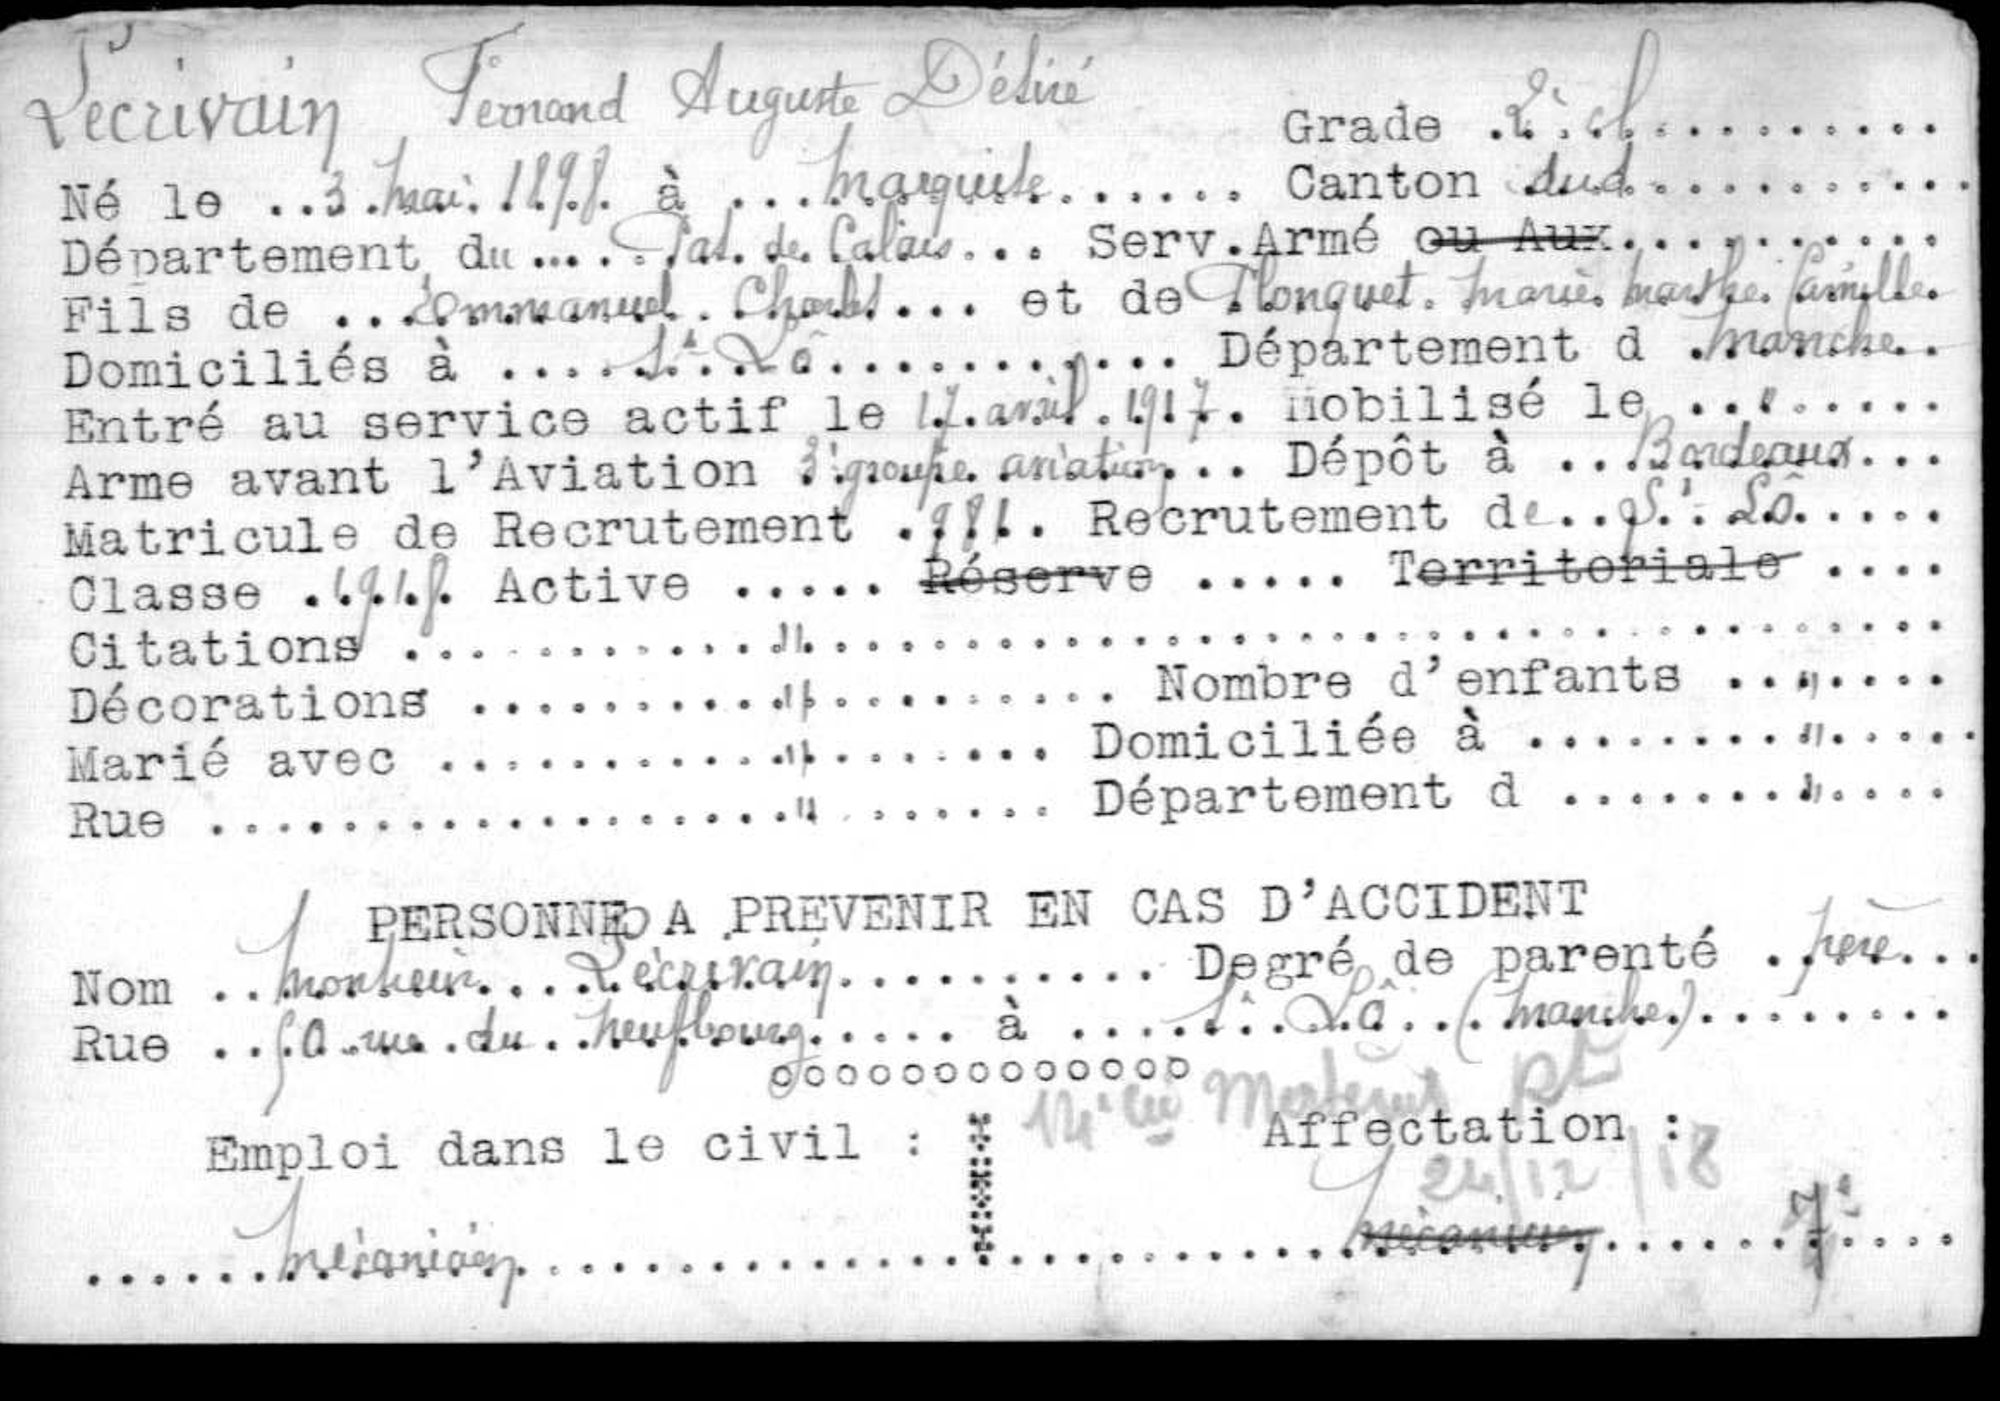 Lecrivain Fernand Auguste Désiré
Grade 2e cl
Né le 3 mai 1898 à Marquise Canton sud
Département du Pas de Calais Serv.Armé ou Aux
Fils de Emmanuel Charles et de Flonquet Marie Marthe Camille
Domiciliés à St Lô Département d Manche
Entré au service actif le 17 avril 1917. Mobilisé le "
Arme avant l'Aviation 3e groupe aviation Dépôt à Bordeaux
Matricule de Recrutement 981. Recrutement de St Lô
Classe 1918 Active ..... Réserve ..... Territoriale ....
Citations "
Décorations " Nombre d'enfants "
Marié avec " Domiciliée à "
Rue " Département d "
PERSONNE A PREVENIR EN CAS D'ACCIDENT
Nom Monsieur Lécrivain Degré de parenté père
Rue 50 rue du Neufbourg à St Lô (Manche)
oooooooooooooo
Emploi dans le civil : Affectation :
24/12/18
mécanicien mécanicien